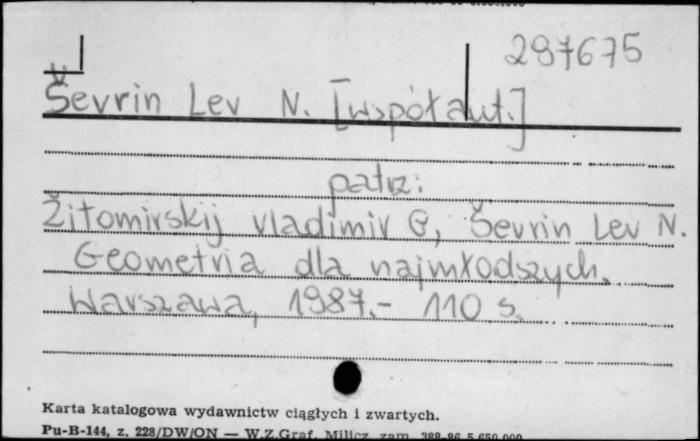 297675
Ševrin Lev N. [współaut.]
patrz:
Žitomirskij Vladimir G, Ševrin Lev N.
Geometria dla najmłodszych.
Warszawa, 1987.- 110 s.
Karta katalogowa wydawnictw ciągłych i zwartych.
Pu-B-144, z. 228/DW/ON — W.Z.Graf. Milicz zam. 388-86 5.650.000